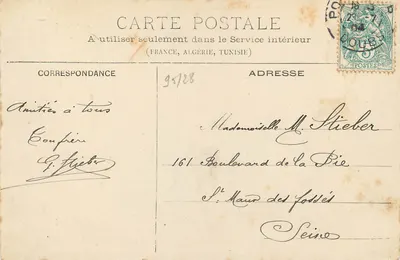 CARTE POSTALE
A utiliser seulement dans le Service intérieur
(FRANCE, ALGÉRIE, TUNISIE)
CORRESPONDANCE
ADRESSE
95/28
Amitiés à tous
G. Stieber
Mademoiselle M. Stieber
161 Boulevard de la Pie
St Maur des fossés
Seine